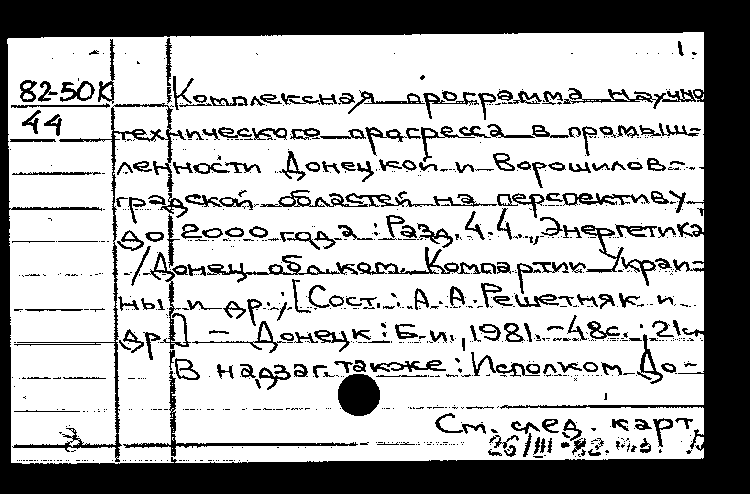 1.
82-50К Комплексная программа научно
44 технического прогресса в промыш=
ленности Донецкой и Ворошилов=
градской областей на перспективу
до 2000 года : Разд. 4.4. „Энергетика"
/Донец. обл. ком. Компартии Украи=
ны и др.; [Сост.: А.А. Решетняк и
др.] – Донецк : Б.и., 1981. – 48с. ; 21см
В надзаг. также : Исполком До-
См. след. карт.
26/III-82.